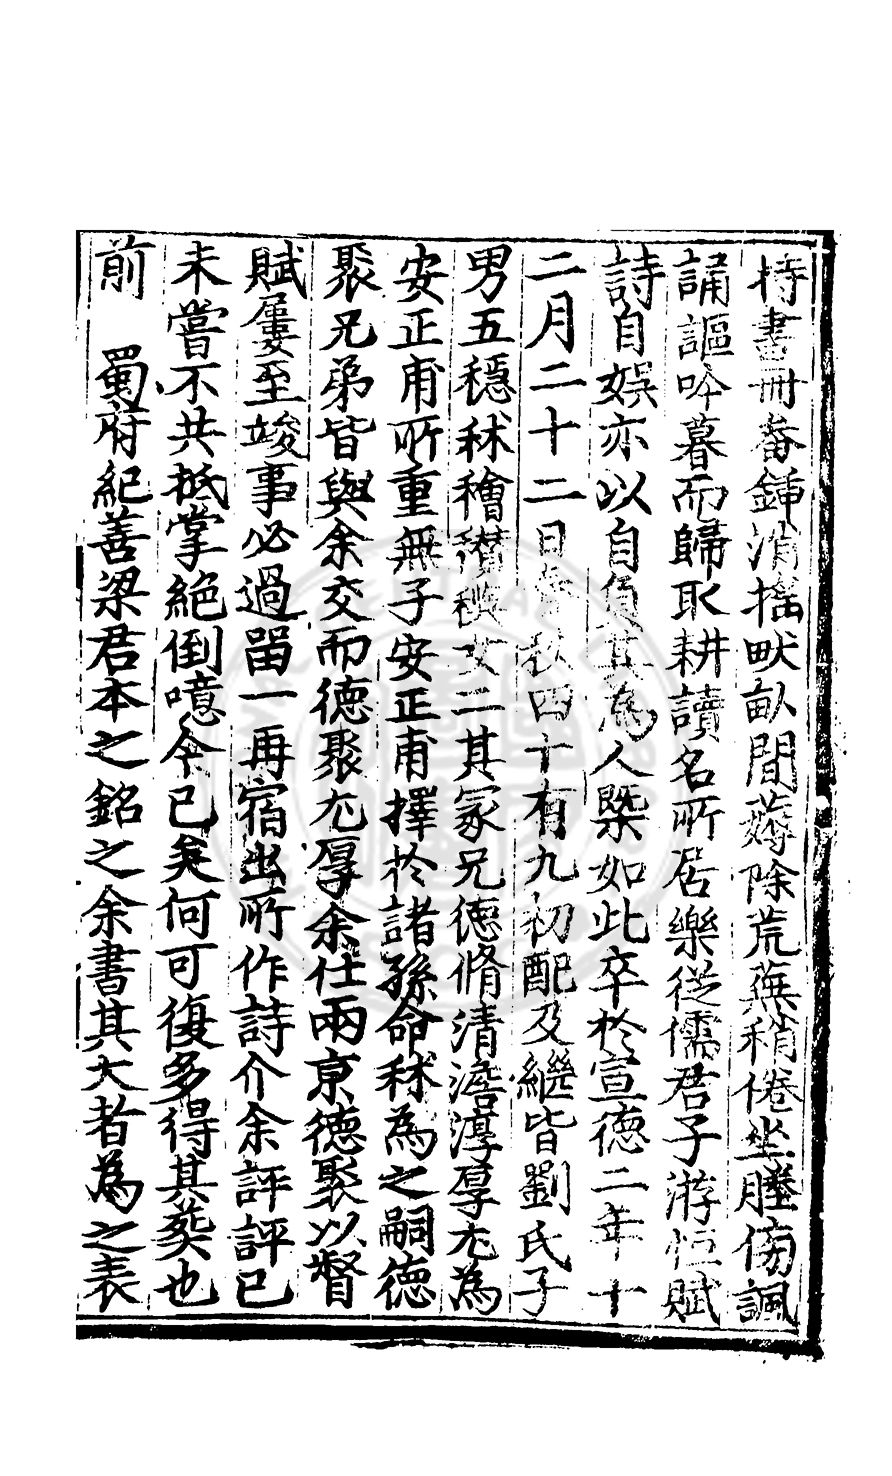 持書冊畚鍤消搖畎畝間薅除荒蕪稍倦坐塍傍諷
誦謳吟暮而歸取耕讀名所居樂從儒君子游恒賦
詩自娛亦以自負其為人槩如此卒於宣德二年十
二月二十二日春秋四十有九初配及繼皆劉氏子
男五穩秫穧女二其冢兄德脩清澹淳厚尤為
安正甫所重無子安正甫擇於諸孫命秫為之嗣德
聚兄弟皆與余交而德聚尤厚余仕兩京德聚以督
賦屢至竣事必過留一再宿出所作詩介余評評已
未嘗不共抵掌絕倒噫今已矣何可復多得其葬也
前 蜀府紀善梁君本之銘之余書其大者為之表